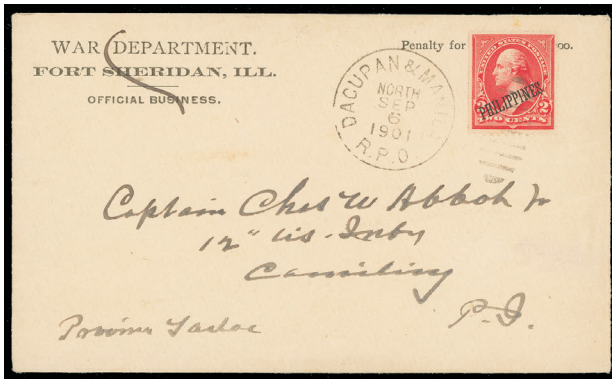 WAR DEPARTMENT.
FORT SHERIDAN, ILL.
OFFICIAL BUSINESS.
Penalty for oo.
DAGUPAN & MANILA
NORTH
SEP
6
1901
R.P.O.
PHILIPPINES
2 2
TWO CENTS
Captain Chas W Abbot Jr
12" U.S. Infty
Camiling
P.I.
Province Tarlac